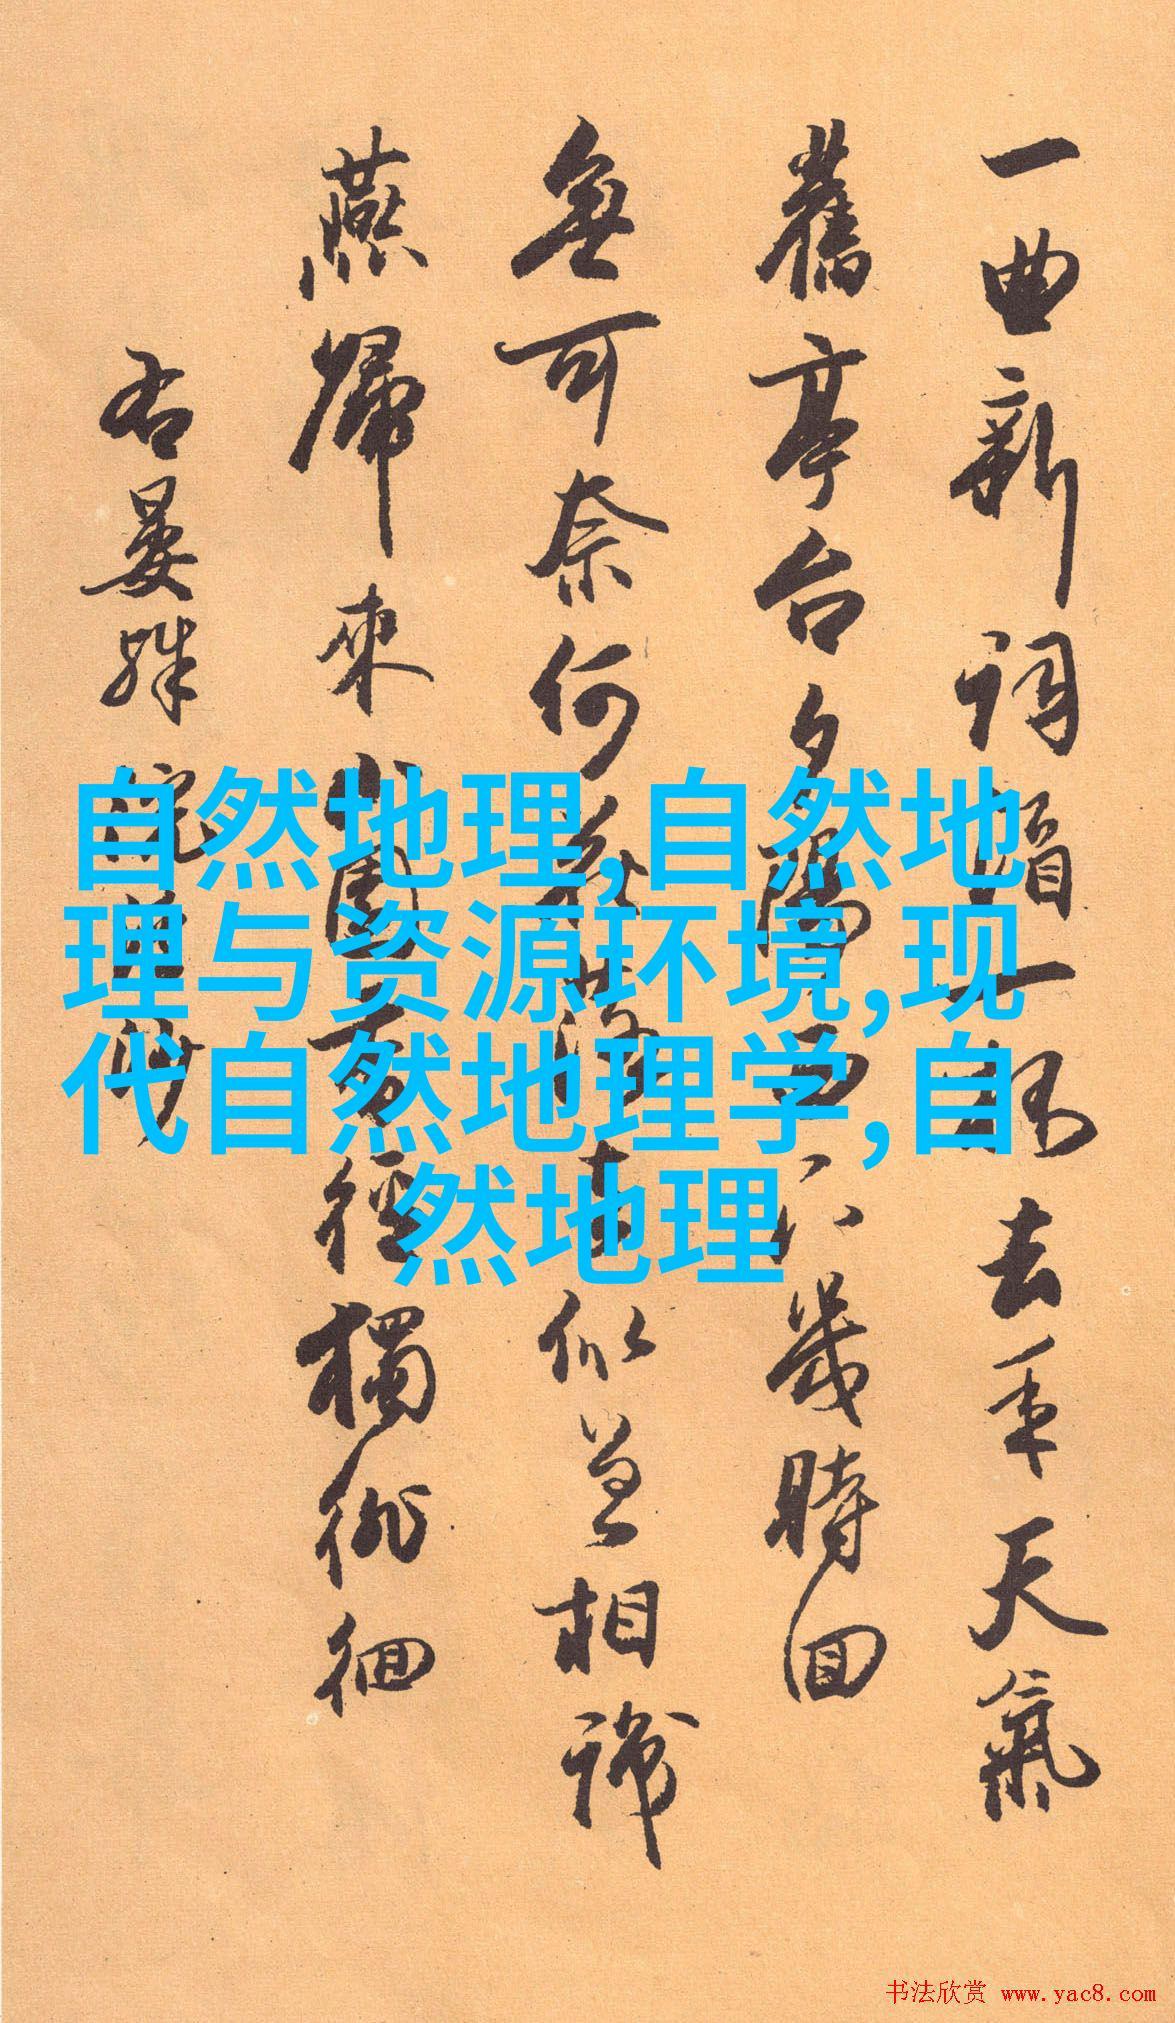 一曲新詞酒一杯去年天氣
舊亭台夕陽西下幾時回
無可奈何花落去似曾相識
燕歸來小園香徑獨徘徊
右晏殊浣溪沙
自然地理,自然地
理与资源环境,现
代自然地理学,自
然地理
书法欣赏 www.yac8.com